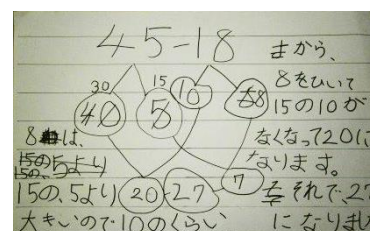 45-18
30 15 10
40 5 8
20 27 7
8は、
15の5より
15の、5より
大きいので10のくらい
まから、
8をひいて
15の10が
なくなって20に
なります。
それで、27
になりまし